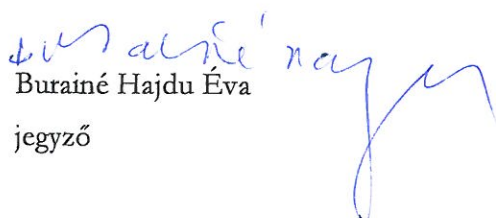 Burainé Hajdu Éva
jegyző